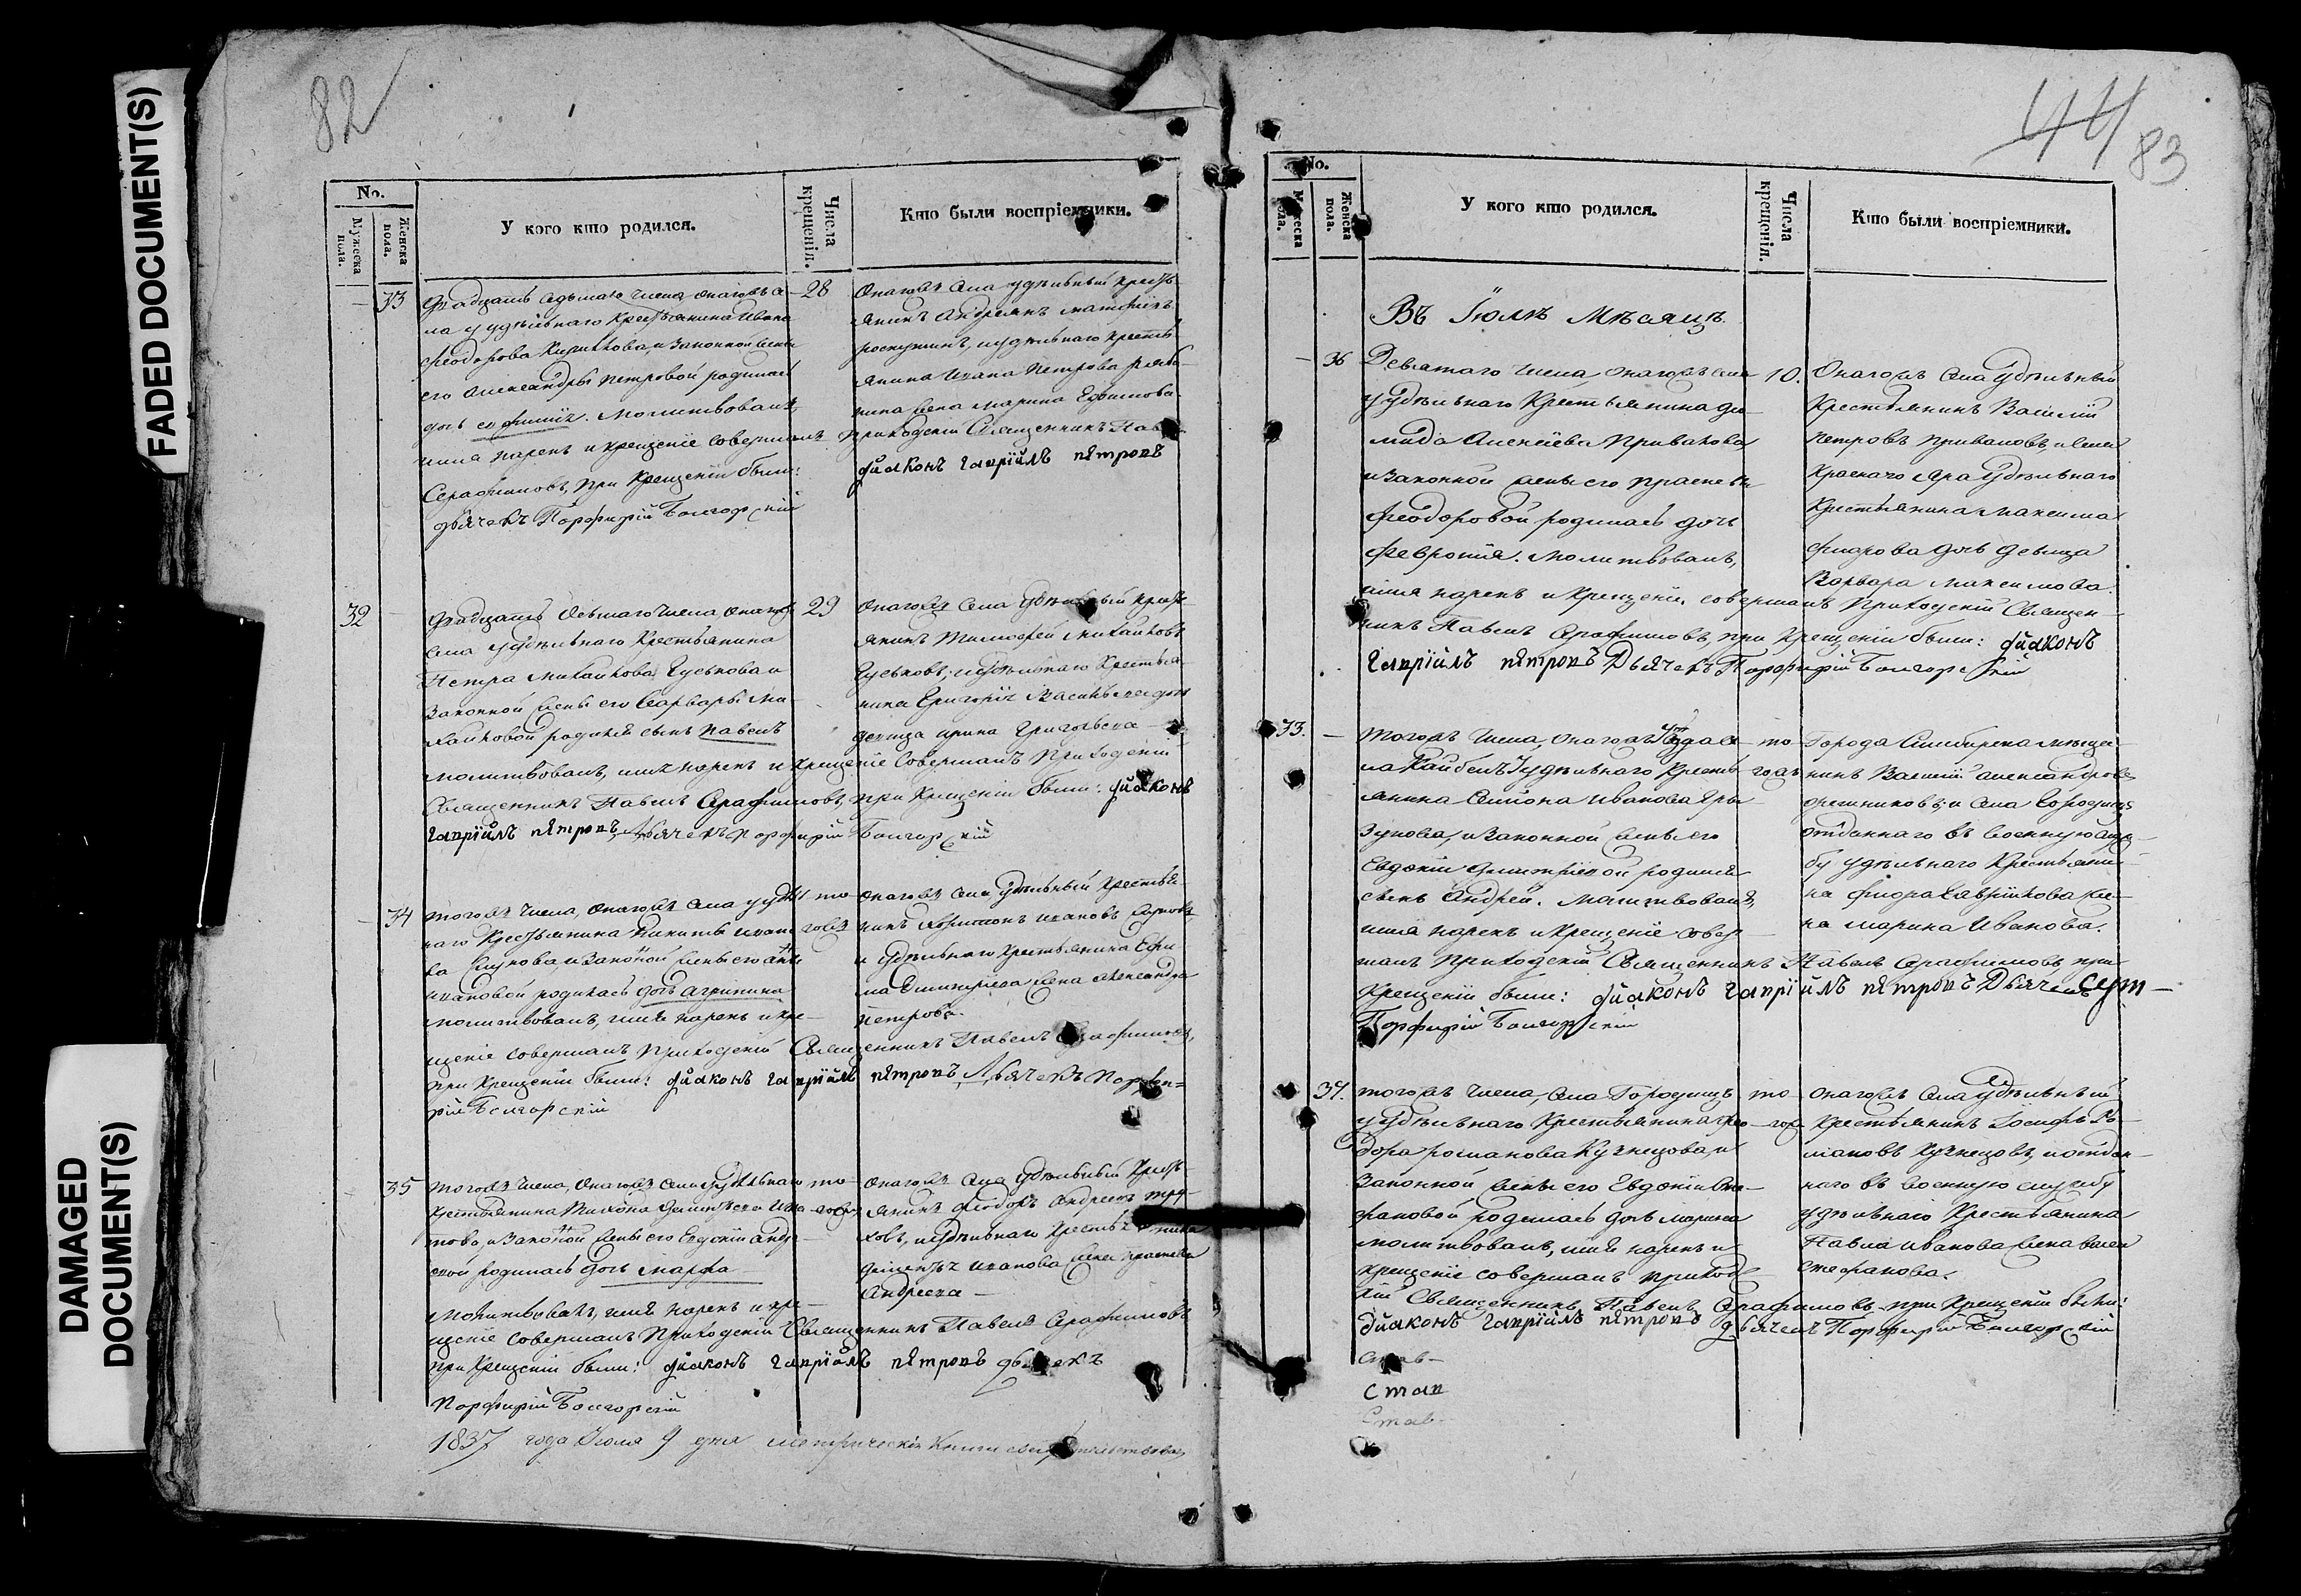 FADED DOCUMENT(S)
DAMAGED DOCUMENT(S)
82
No.
Мужеска пола.
Женска пола.
У кого кто родился.
Числа крещенія.
Кто были воспріемники.
33
28
двадцать седьмаго числа, онагожъ се-
ла у удѣльнаго крестьянина Ивана
Феодорова и законной жены
его Александры Петровой родилась
дочь Молитвовалъ,
имя нарекъ и крещеніе совершалъ приходскій Священникъ Пав
Серафимовъ, при крещеніи были:
дьячекъ Порфирій Болгорскій
Онагожъ села удѣльный кресть
янинъ Андреянъ
и удѣльнаго кресть
янина Ивана Петрова
жена Марина Ефимова
діаконъ Гавріилъ Петровъ
32
29
двадцать девятаго числа, онагожъ
села у удѣльнаго крестьянина
Петра Михайлова Гуськова и
законной жены его Варвары Ми-
хайловой родился сынъ Павелъ
молитвовалъ, имя нарекъ и крещеніе совершалъ Приходскій
Священникъ Павелъ Серафимовъ, при крещеніи были: діаконъ
Гавріилъ Петровъ, Дьячекъ Порфирій Болгорскій
Онагожъ села удѣльный кресть
янинъ Тимофей Михайловъ
Гуськовъ, и удѣльнаго крестья
нина Григорія дочь
девица Ирина Григорьева
34
тогожъ числа, онагожъ села у удѣль
наго крестьянина Никиты Ивано
ва и законной жены его Анны
Ивановой родилась дочь Агрипина
молитвовалъ, имя нарекъ и кре-
щеніе совершалъ приходскій Священникъ Павелъ Серафимовъ,
при крещеніи были: діаконъ Гавріилъ Петровъ, Дьячекъ Порфи=
рій Болгорскій
то
гожъ
онагожъ села удѣльный крестья-
нинъ Ивановъ
и удѣльнаго крестьянина Ефи
ма Димитріева жена Александра
Петрова.
35
тогожъ числа, онагожъ села у удѣльнаго
крестьянина Тихона Димитріева
и законной жены его Евдокіи Андре
евой родилась дочь Марфа
Молитвовалъ, имя нарекъ и кре-
щеніе совершалъ Приходскій Священникъ Павелъ Серафимовъ
при крещеніи были: діаконъ Гавріилъ Петровъ дьячекъ
Порфирій Болгорскій
то
гожъ
онагожъ села удѣльный кресть-
янинъ Феодоръ Андреевъ
и удѣльнаго крестьянина
Иванова жена
Андреева
1837 года Іюля 9 дня метрическія книги свидѣтельствовалъ
44
83
No.
Мужеска пола.
Женска пола.
У кого кто родился.
Числа крещенія.
Кто были воспріемники.
Въ Іюлѣ Мѣсяцѣ.
36
10.
Девятаго числа, онагожъ села
у удѣльнаго крестьянина Дио-
мида Алексѣева Привалова,
и законной жены его Прасковьи
Феодоровой родилась дочь
Февронія. Молитвовалъ,
имя нарекъ и крещеніе совершалъ приходскій Священ-
никъ Павелъ Серафимовъ, при крещеніи были: діаконъ
Гавріилъ Петровъ Дьячекъ Порфирій Болгорскій
Онагожъ села удѣльный
крестьянинъ Василій
Петровъ Приваловъ, и села
Краснаго Яра удѣльнаго
крестьянина Максима
Фиорова дочь девица
Варвара Максимова.
33.
Тогожъ числа, онагожъ се
ла у удѣльнаго кресть
янина Симона Иванова Гры
зунова, и законной жены его
Евдокіи Димитріевой родился
сынъ Андрей. Молитвовалъ,
имя нарекъ и крещеніе совер
шалъ приходскій Священникъ Павелъ Серафимовъ, при
крещеніи были: діаконъ Гавріилъ Петровъ Дьячекъ
Порфирій Болгорскій
то
гожъ
Города Симбирска мѣща
нинъ Василій Александровъ
Орешниковъ, и села Городищъ
отданнаго въ военную служ-
бу удѣльнаго крестьяни-
на Фиора Гаврилова же-
на Марина Иванова.
37.
тогожъ числа, села Городищъ
у удѣльнаго крестьянина Фео
дора Романова Кузнецова, и
законной жены его Евдокіи Сте-
фановой родилась дочь Марина
молитвовалъ, имя нарекъ и
крещеніе совершалъ приход
кій Священникъ Павелъ Серафимовъ, при крещеніи были:
діаконъ Гавріилъ Петровъ дьячекъ Порфирій Болгорскій
то
гожъ
онагожъ села удѣльный
крестьянинъ Іосифъ Ро-
мановъ Кузнецовъ, и отдан-
наго въ военную службу
удѣльнаго крестьянина
Павла Иванова жена
Стефанова.
став-
став
Став-